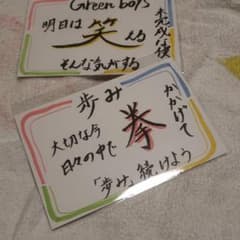 Green boys
明日は
笑
える
そんな気がする
歩み
大切な今
日々の中で
拳
かかげて
「歩み」続けよう